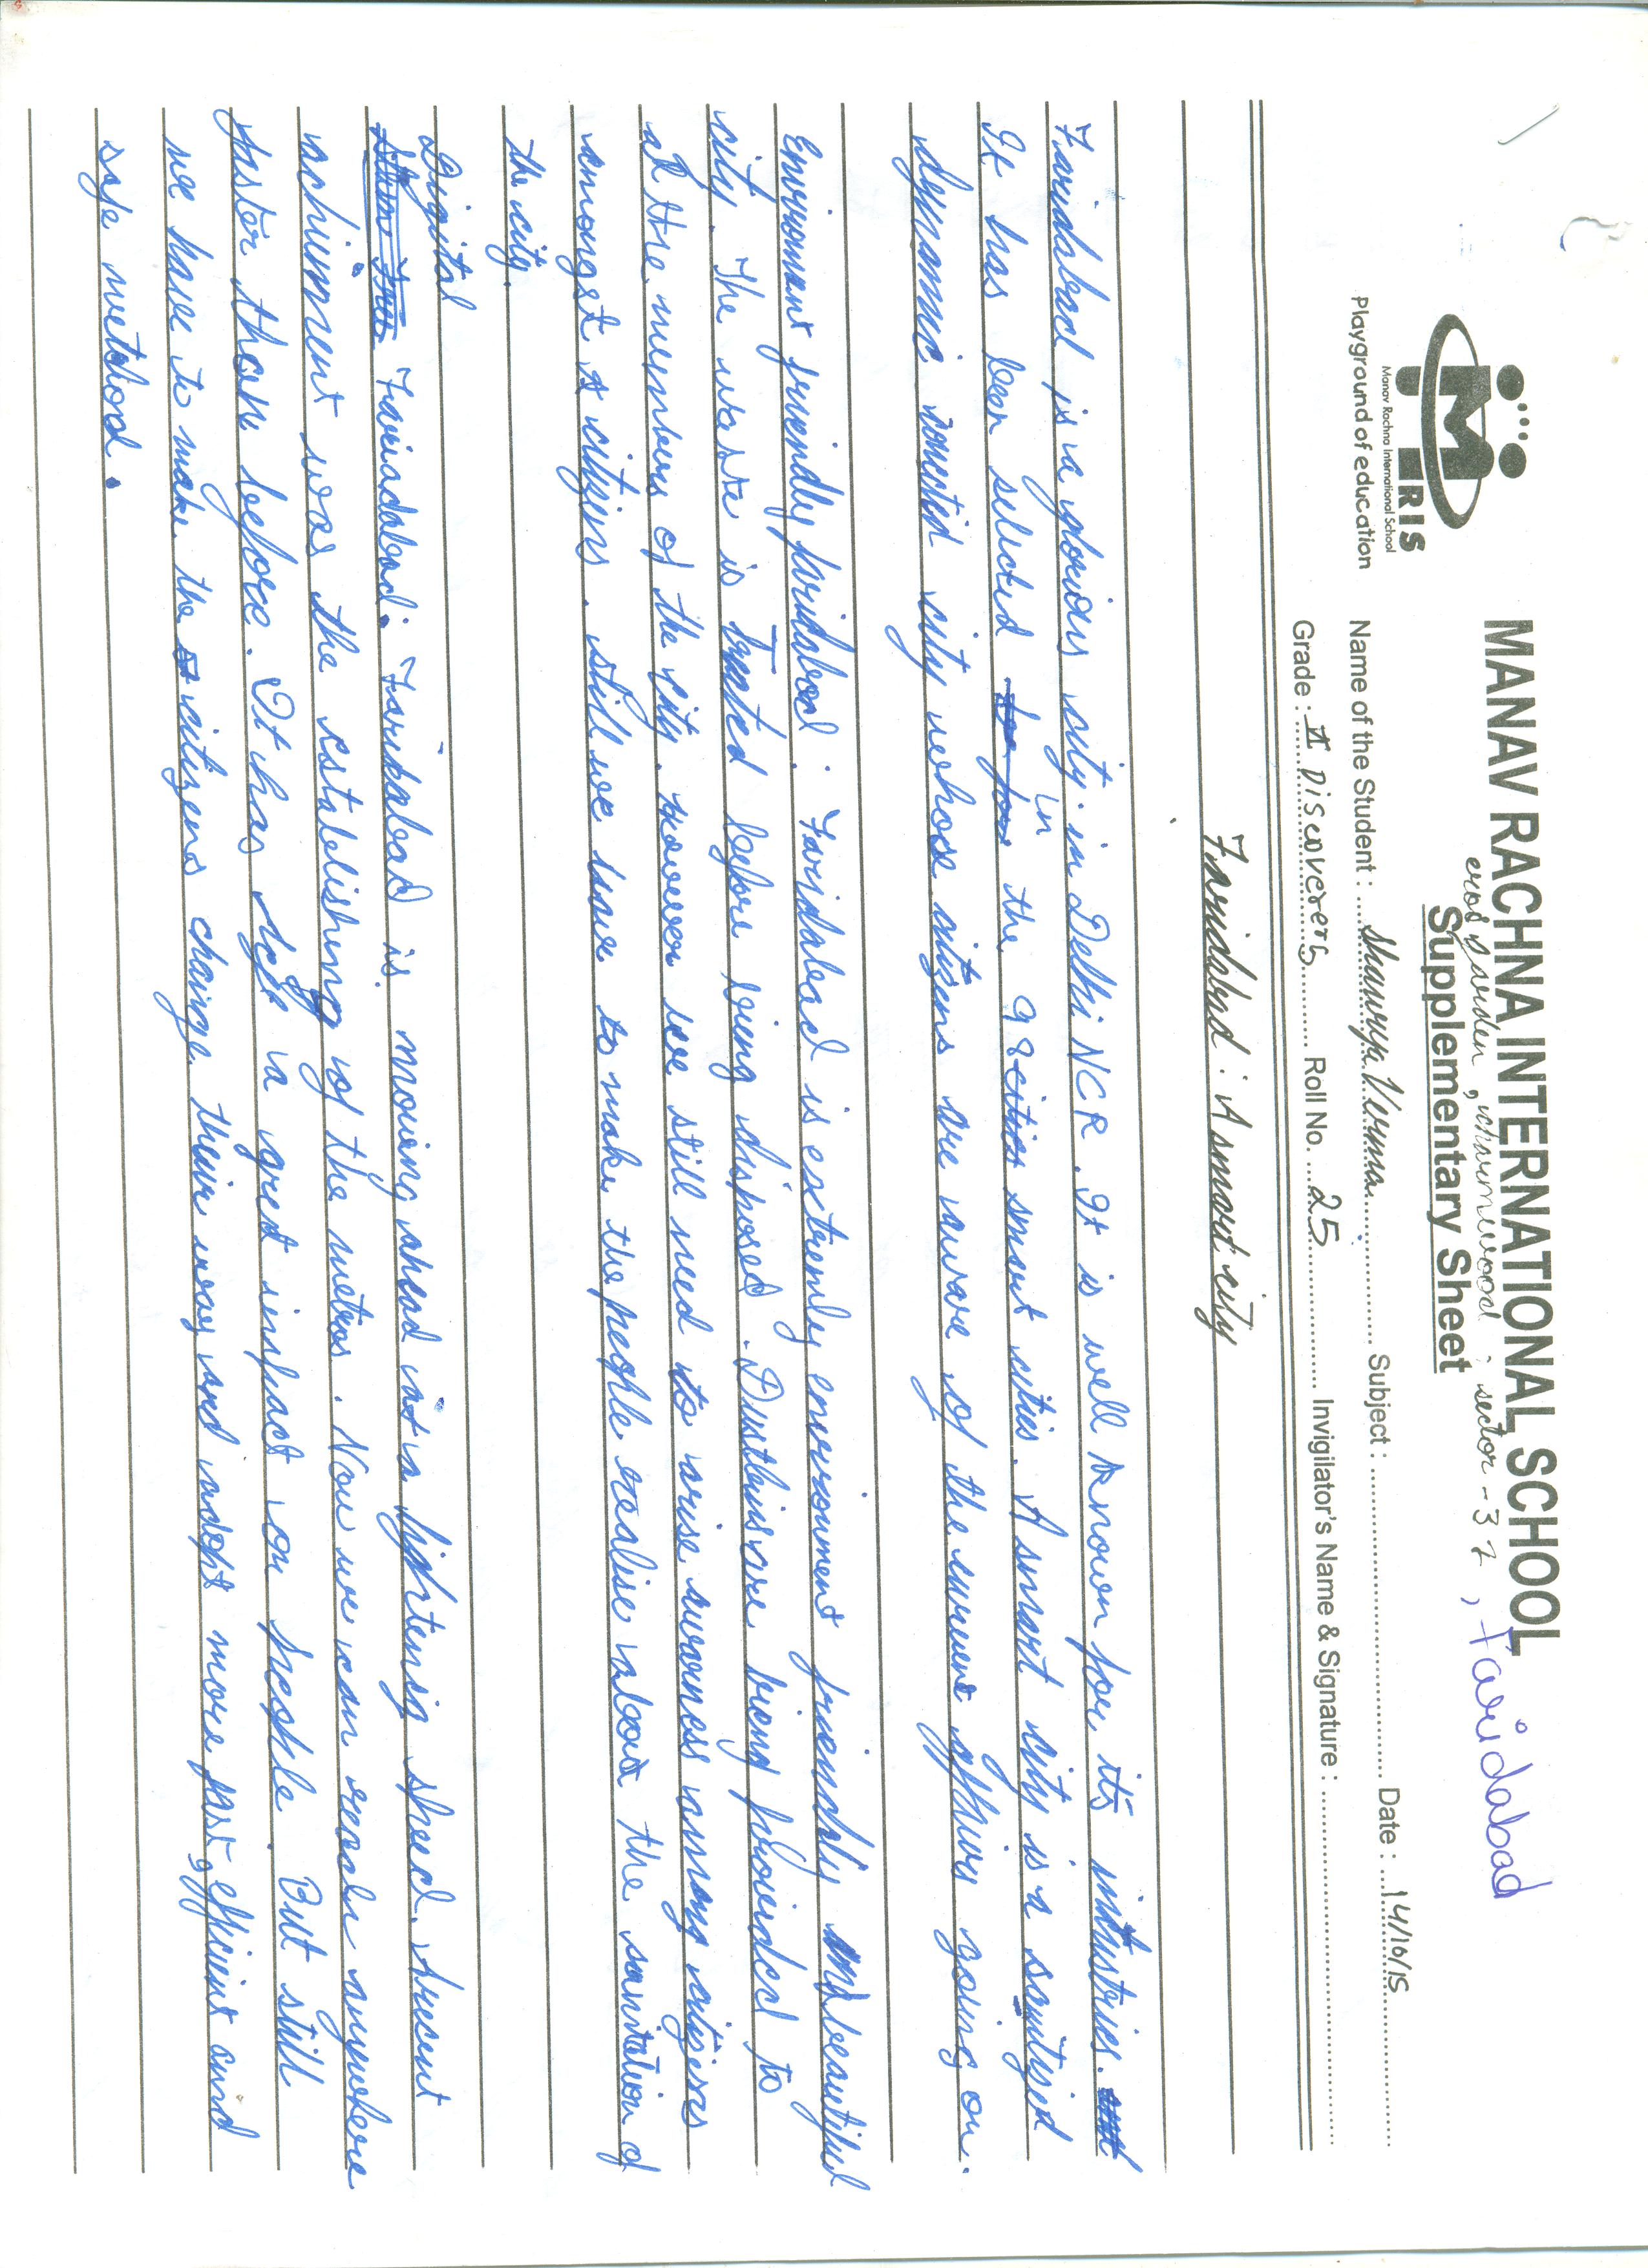 MANAV RACHNA INTERNATIONAL SCHOOL
eros garden, charmwood, sector-37, Faridabad
Supplementary Sheet
RIS
Manav Rachna International School
Playground of education
Name of the Student : Shaurya Verma Subject : Date : 14/10/15
Grade : Discoverers Roll No. 25 Invigilator's Name & Signature :
Faridabad : A smart city
Faridabad is a glorious city in Delhi NCR. It is well known for its industries.
It has been selected in the 98 cities smart cities. A smart city is a
dynamic city whose citizens are aware of the current affairs going on.
Enviroment friendly faridabad : Faridabad is extremly enviroument friendly and beautiful
city. The waste is treated before being disposed. Dustbins are being provided to
all the members of the city. However we still need to arise awarness among citizens
amongst citizens. still we have to make the people realise about the sanitation of
the city.
Digital
Faridabad : Faridabad is moving ahead at a lightenig speed. recent
achiument was the establishing of the metros. Now we can reach anywhere
faster than before. It has left a great impact on people. But still
we have to make the citizens change their way and adopt more fast, efficient and
safe method.